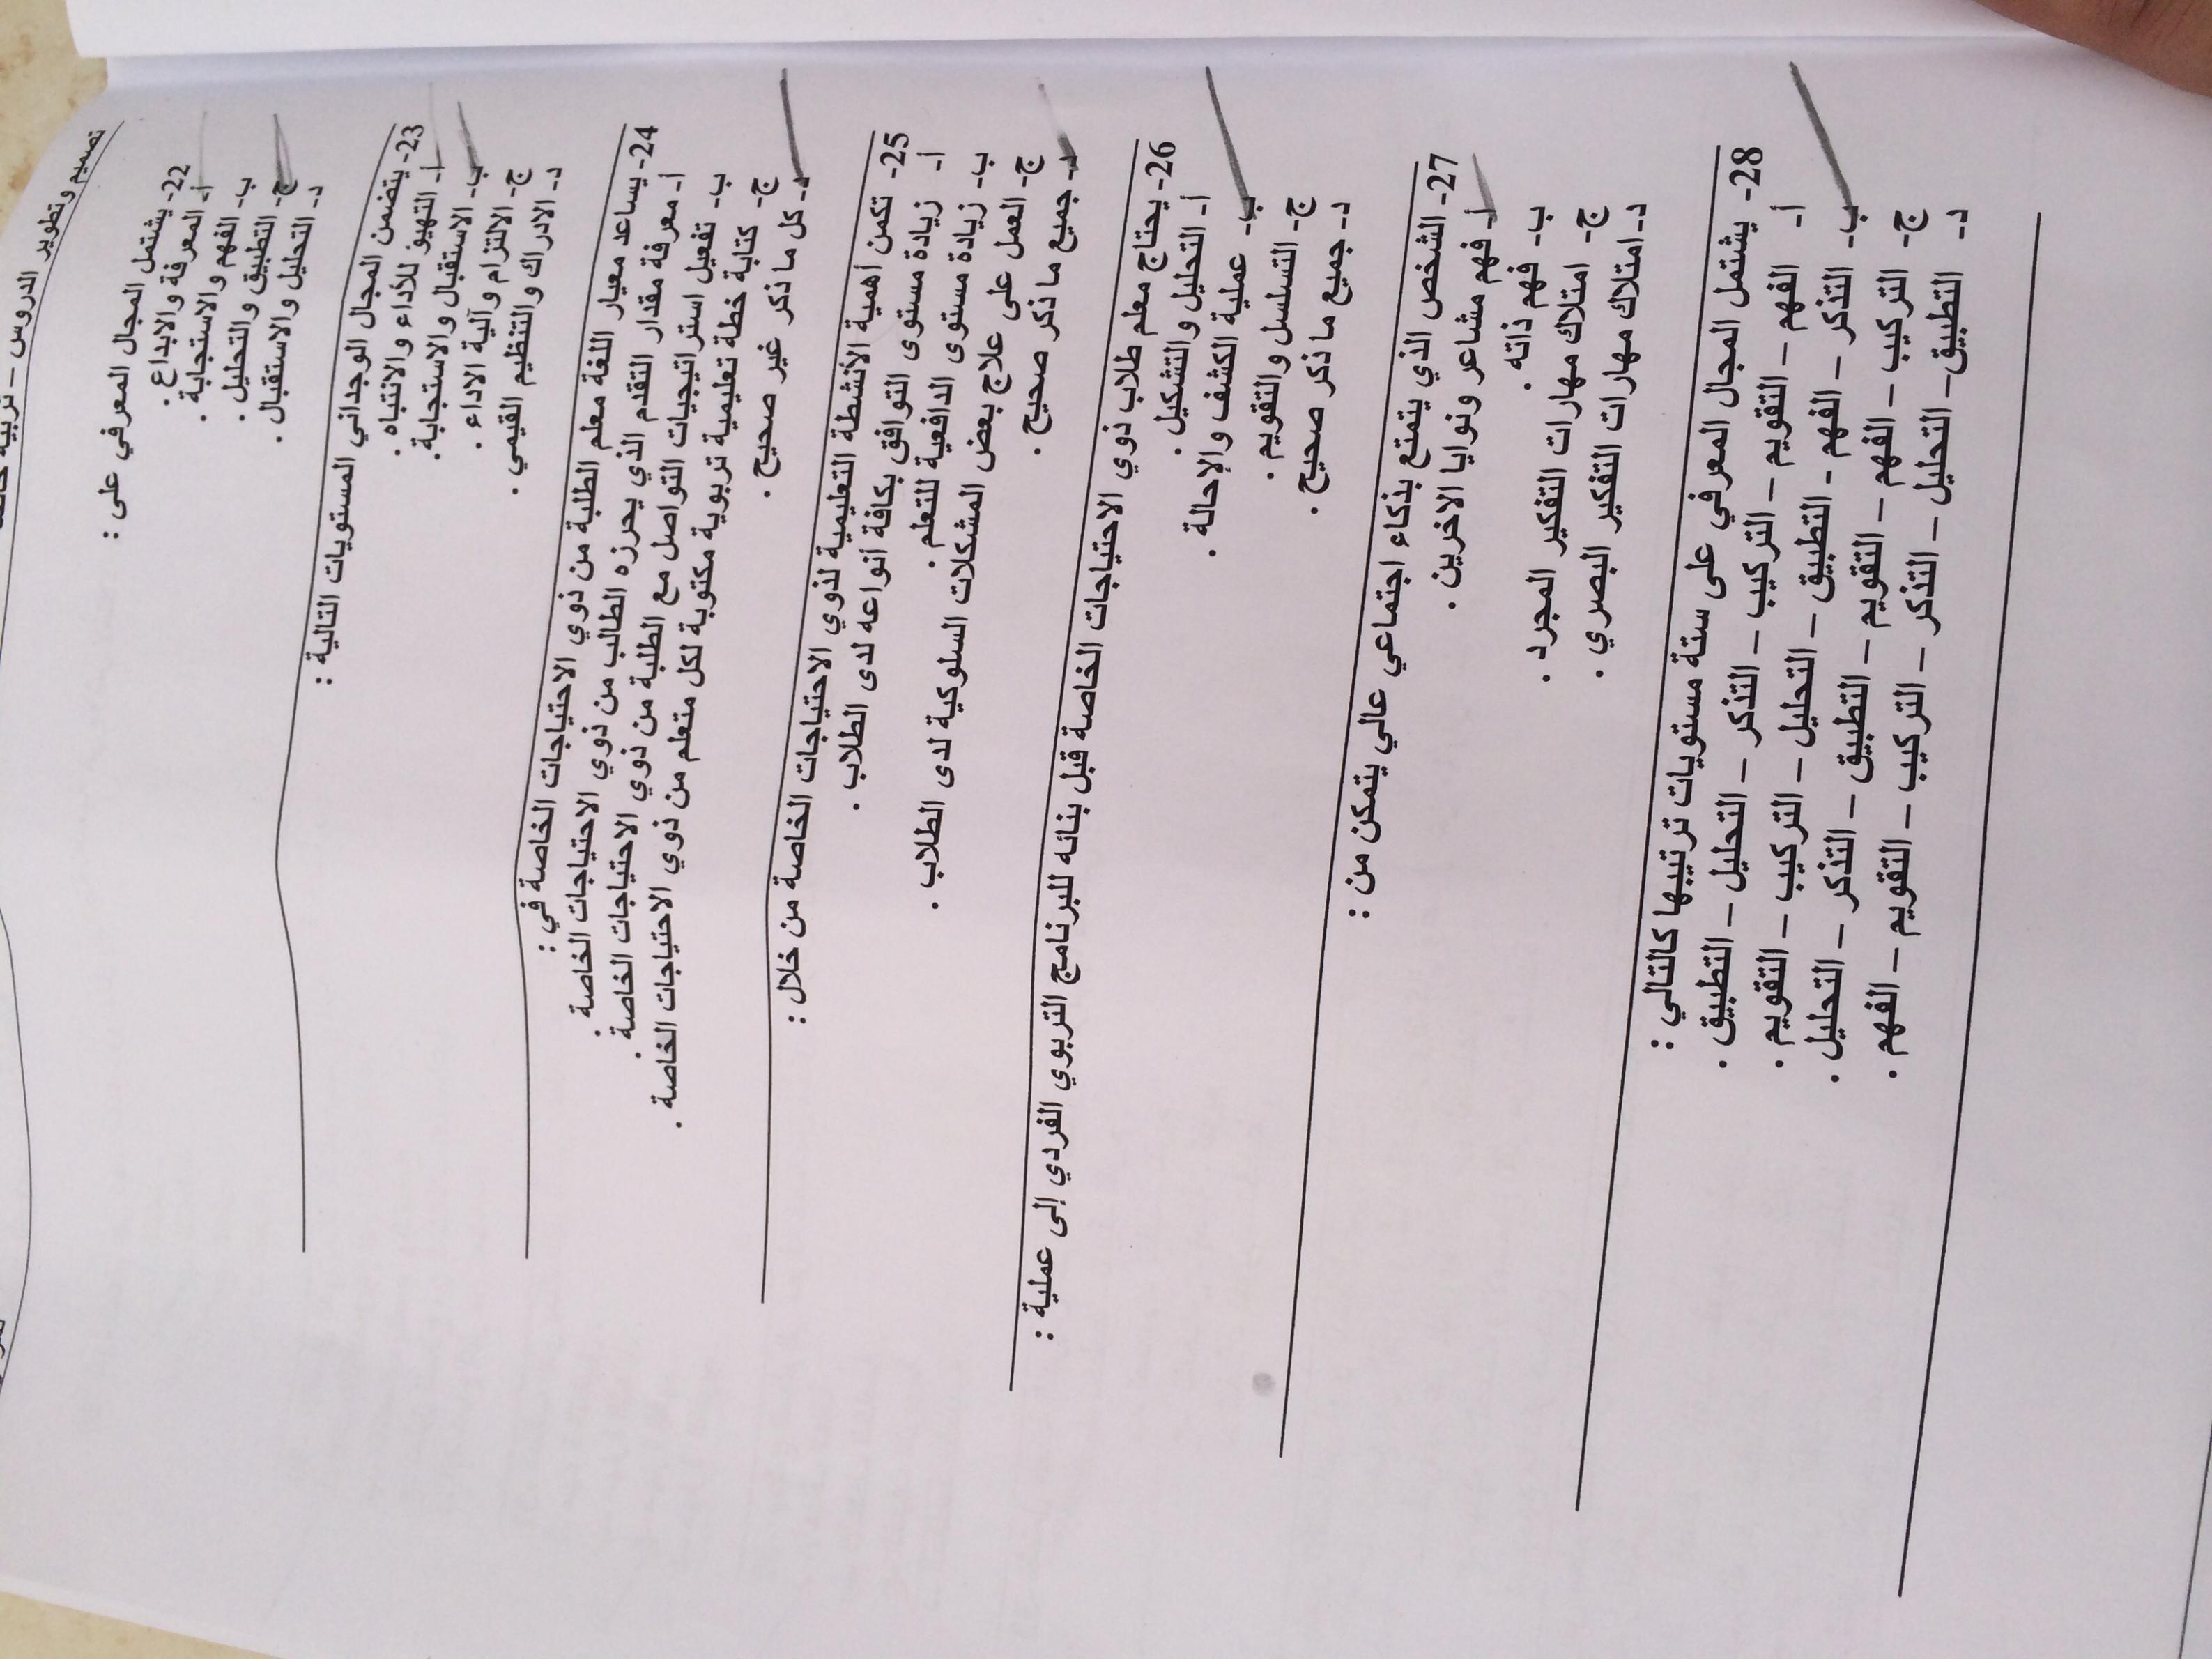 تصميم وتطوير الدروس – تربية خاصة
22- يشتمل المجال المعرفي على :
أ- المعرفة والابداع .
ب- الفهم والاستجابة .
ج- التطبيق والتحليل .
د- التحليل والاستقبال .
23- يتضمن المجال الوجداني المستويات التالية :
أ- التهيؤ للأداء والانتباه .
ب- الاستقبال والاستجابة.
ج- الالتزام وآلية الاداء .
د- الادراك والتنظيم القيمي .
24- يساعد معيار اللغة معلم الطلبة من ذوي الاحتياجات الخاصة في :
أ- معرفة مقدار التقدم الذي يحرزه الطالب من ذوي الاحتياجات الخاصة .
ب- تفعيل استراتيجيات التواصل مع الطلبة من ذوي الاحتياجات الخاصة .
ج- كتابة خطة تعليمية تربوية مكتوبة لكل متعلم من ذوي الاحتياجات الخاصة .
د- كل ما ذكر غير صحيح .
25- تكمن أهمية الأنشطة التعليمية لذوي الاحتياجات الخاصة من خلال :
أ- زيادة مستوى التوافق بكافة أنواعه لدى الطلاب .
ب- زيادة مستوى الدافعية للتعلم .
ج- العمل على علاج بعض المشكلات السلوكية لدى الطلاب .
د- جميع ما ذكر صحيح .
26- يحتاج معلم طلاب ذوي الاحتياجات الخاصة قبل بنائه للبرنامج التربوي الفردي إلى عملية :
أ- التحليل والتشكيل .
ب- عملية الكشف والإحالة .
ج- التسلسل والتقويم .
د- جميع ما ذكر صحيح .
27- الشخص الذي يتمتع بذكاء اجتماعي عالي يتمكن من :
أ- فهم مشاعر ونوايا الاخرين .
ب- فهم ذاته .
ج- امتلاك مهارات التفكير المجرد .
د- امتلاك مهارات التفكير البصري .
28- يشتمل المجال المعرفي على ستة مستويات ترتيبها كالتالي :
أ- الفهم – التقويم – التركيب – التذكر – التحليل – التطبيق .
ب- التذكر – الفهم - التطبيق – التحليل – التركيب – التقويم .
ج- التركيب – الفهم – التقويم – التطبيق – التذكر – التحليل .
د- التطبيق– التحليل – التذكر – التركيب – التقويم – الفهم .